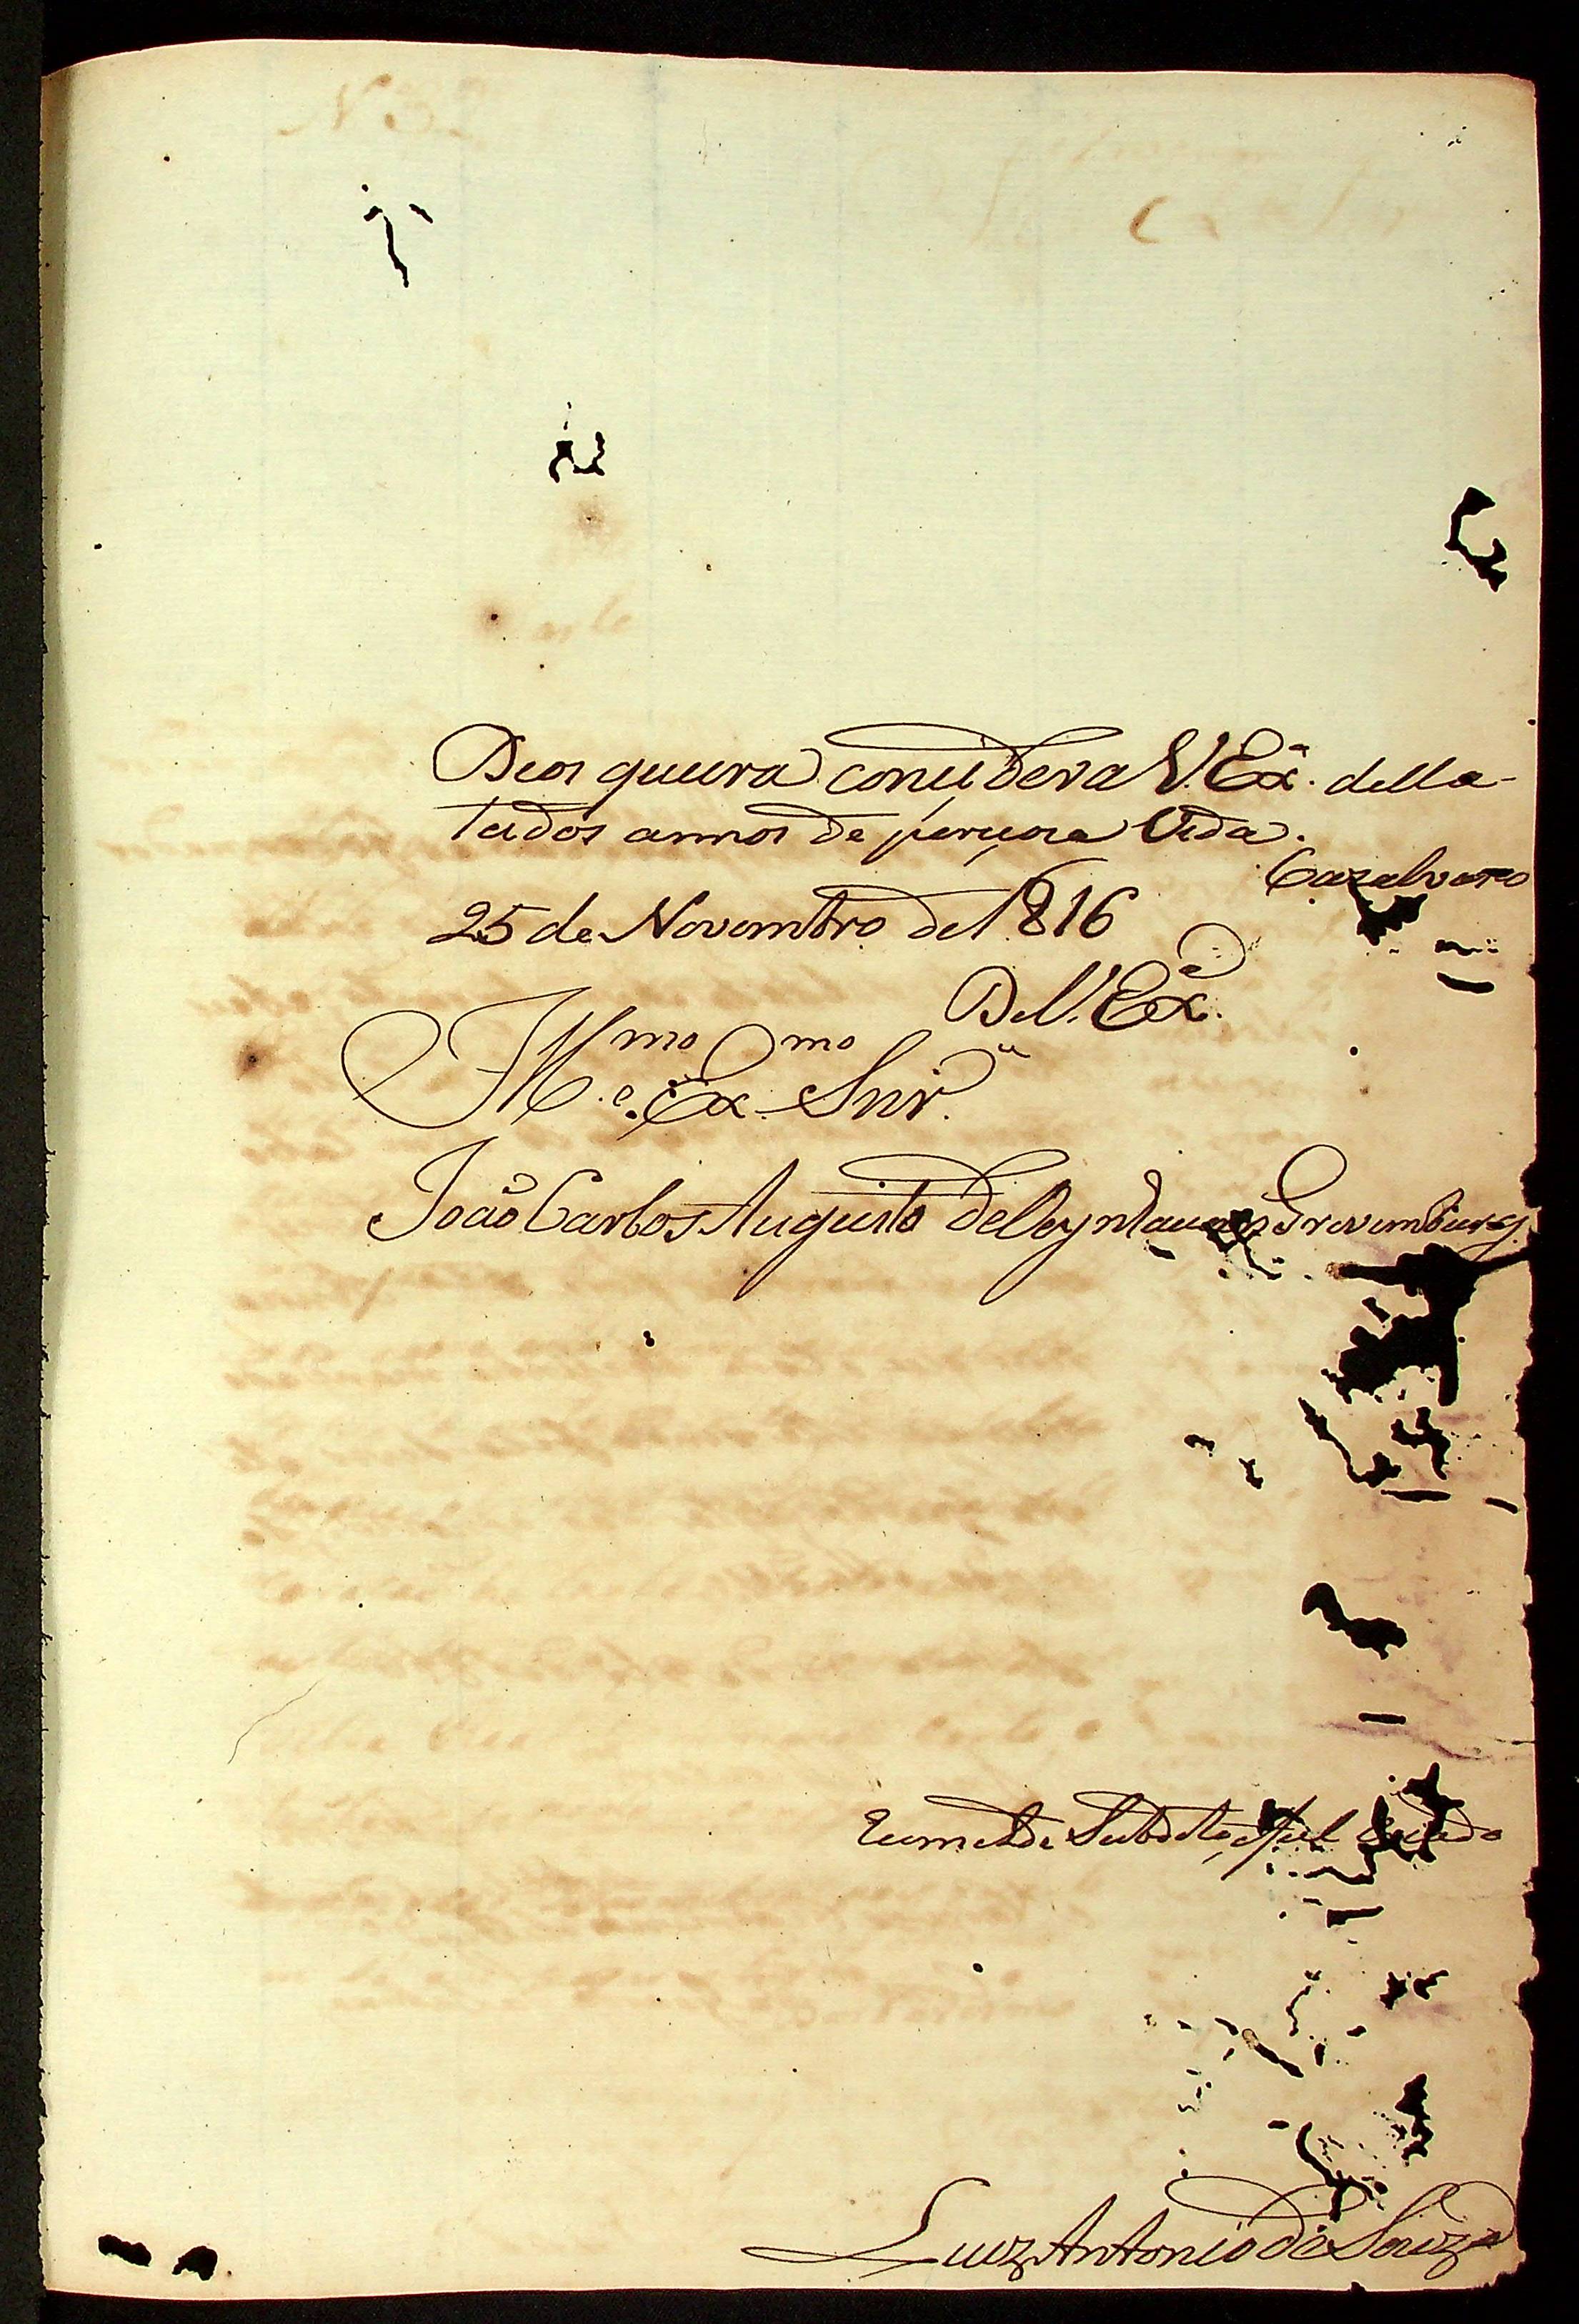 Deos queira conceder a V. Exª. della-
tados annos de percioza Vida.
Cazalvasco
25 de Novembro de 1816
De V. Exª.
Illmo. e Exmo. Snr.
João Carlos Augusto de Oeynhausen Grevemburg.
Subdito fiel
Luiz Antonio de Souza